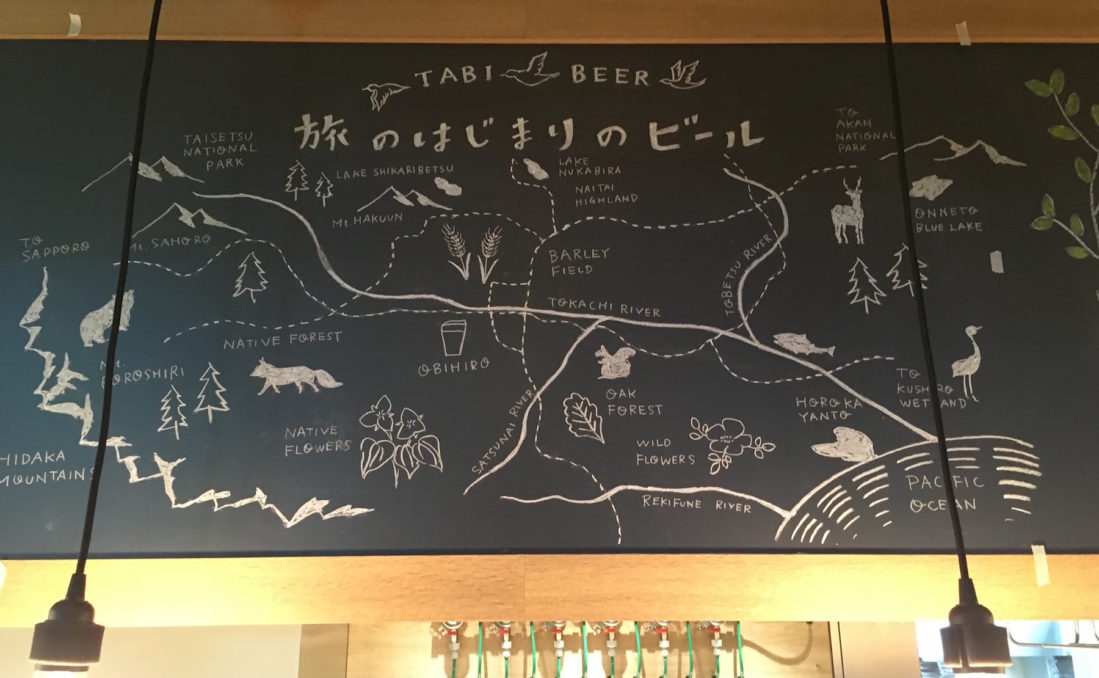 TABI BEER
旅のはじまりのビール
TAISETSU
NATIONAL
PARK
LAKE SHIKARIBETSU
LAKE
NUKABIRA
NAITAI
HIGHLAND
TO
AKAN
NATIONAL
PARK
Mt. HAKUUN
ONNETO
BLUE LAKE
TO
SAPPORO
Mt. SAHORO
BARLEY
FIELD
TOBETSU RIVER
TOKACHI RIVER
NATIVE FOREST
OBIHIRO
Mt.
POROSHIRI
OAK
FOREST
TO
KUSHIRO
WETLAND
HOROKA
YANTO
NATIVE
FLOWERS
SATSUNAI RIVER
WILD
FLOWERS
HIDAKA
MOUNTAINS
REKIFUNE RIVER
PACIFIC
OCEAN